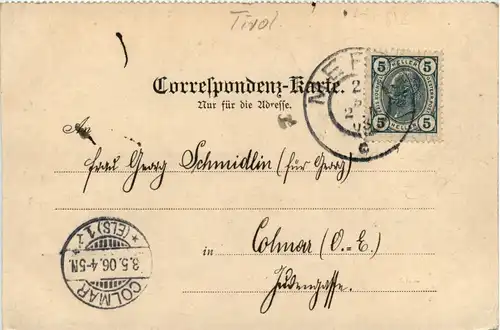 Tirol
Correspondenz-Karte.
Nur für die Adresse.
5 HELLER 5
5 HELLER 5
An
Frau Georg Schmidlin (für Georg)
in Colmar (O.-E.)
Judengasse.
* (ELS) 1 *
3.5.06.4-5N.
COLMAR